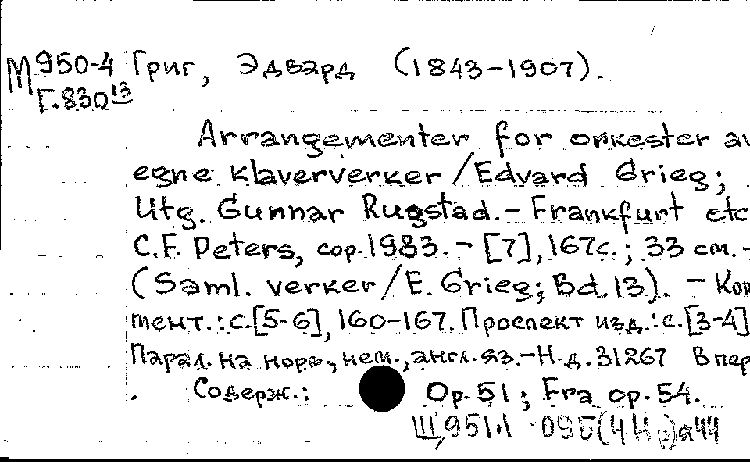 М 950-4 Григ, Эдвард (1843-1907).
Г.830 13
Arrangementer for orkester av
egne klaververker / Edvard Grieg;
Utg. Gunnar Rugstad. - Frankfurt etc
C.F. Peters, cop. 1983. - [7], 167с.; 33 см. -
(Saml. verker / E. Grieg; Bd. 13). - Ком
мент.: с.[5-6], 160-167. Проспект изд.: с.[3-4]
Парал. на норв., нем., англ. яз. - Н.д. 31267 В пер
Содерж.: Op. 51; Fra op. 54.
Щ951.1